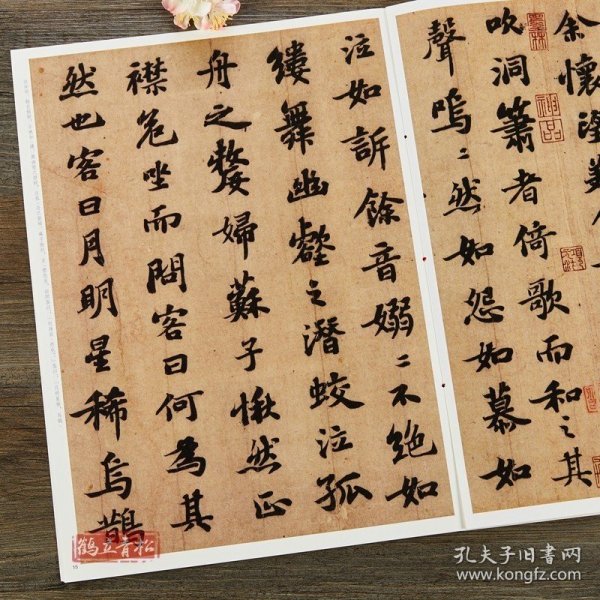 余懷望美
吹洞簫者倚歌而和之其
聲嗚〻然如怨如慕如
泣如訴餘音嫋〻不絕如
縷舞幽壑之潛蛟泣孤
舟之嫠婦蘇子愀然正
襟危坐而問客曰何為其
然也客曰月明星稀烏鵲
神品
鹤立青松
孔夫子旧书网
www.kongfz.com